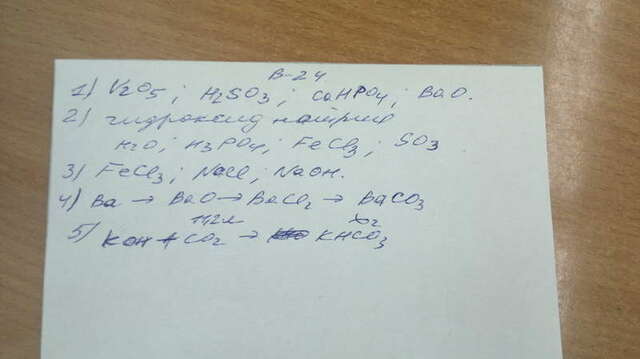 В-24
1) V2O5; H2SO3; CaHPO4; BaO.
2) гидроксид натрия
H2O; H3PO4; FeCl3; SO3
3) FeCl3; NaCl; NaOH.
4) Ba → BaO → BaCl2 → BaCO3
11,2л хг
5) KOH + CO2 → KHCO3